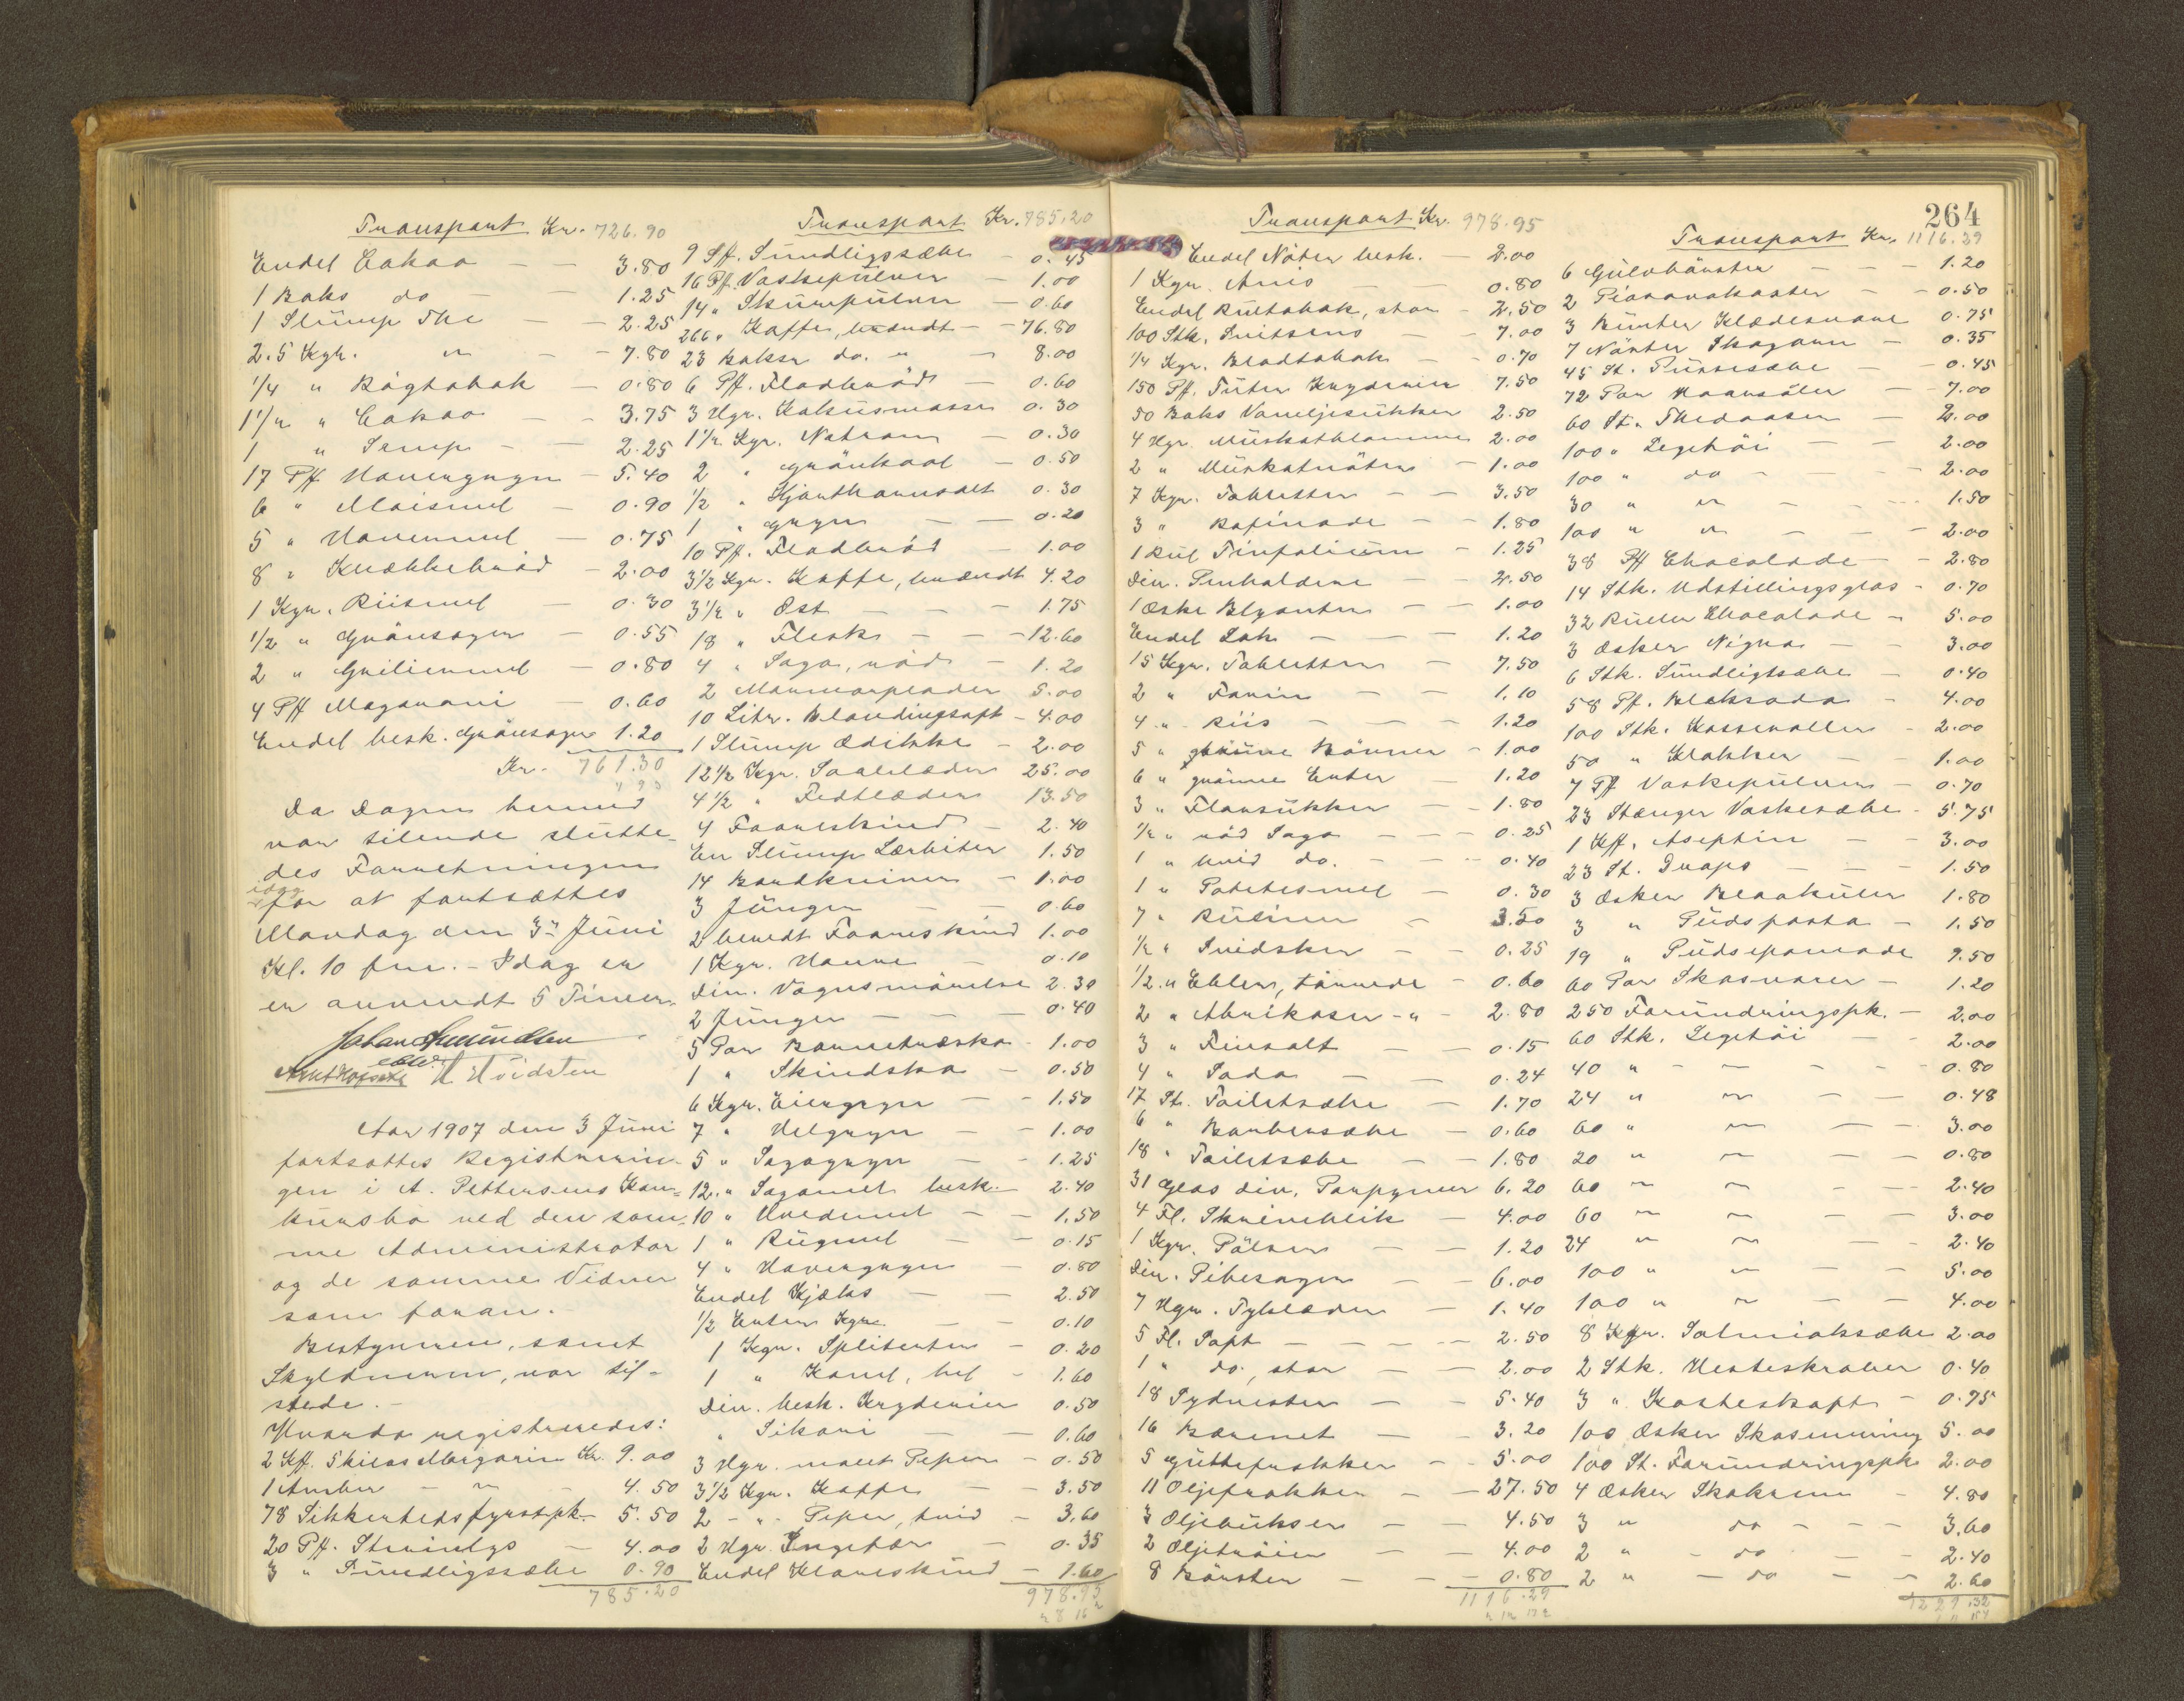 Transport Kr. 726.90
Endel Cakao — — 3.80
1 Boks do — — 1.25
1 Slump The — — 2.25
2.5 Kgr. " — — 7.80
1/4 " Røgtobak — 0.80
1 1/2 " Cakao — — 3.75
1 " — — 2.25
17 Pff Havregryn — 5.40
6 " Maismel — 0.90
5 " Havremel — 0.75
8 " Knækkebrød — 2.00
1 Kgr. Riismel — 0.30
1/2 " Grønsager — 0.55
2 " — 0.80
4 Pff Magaroni — 0.60
Endel besk. Grønsager 1.20
Kr. 761.30
Da Dagen hermed
var tilende slutte-
des Forretningen
idag
for at fortsættes
Mandag den 3de Juni
Kl. 10 fm. - Idag er
er anvendt 5 Timer.
Johan Amundsen
H Høidsten
Aar 1907 den 3 Juni
fortsattes Registrerin-
gen i A. Pettersens Kon-
kursbo ved den sam-
me Administrator
og de samme Vidner
som foran.
Bestyreren, samt
Skyldneren, var til-
stede. -
Hvorda registreredes:
2 Kff. Skiens Margarin Kr. 9.00
1 Anker — " — 4.50
78 Sikkerhedsfyrstpk. 5.50
20 Pff. Strirlys — 4.00
3 " Sundligssæbe 0.90
785.20
Transport Kr. 785.20
9 Pff. Sundligssæbe — 0.45
16 Pff. Vaskepulver — 1.00
14 " Skurepulver — 0.60
266 " Kaffe, brændt — 76.80
23 Bokser do. " — 8.00
6 Pff. Fladbrød — 0.60
3 Hgr. Kokusmasse 0.30
1 1/2 Kgr. Natron — 0.30
2 " Grønkaal — 0.50
1/2 " Hjorthornsalt 0.30
1 " Gryn — — 0.20
10 Pff. Fladbrød — 1.00
3 1/2 Kgr. Kaffe, brændt 4.20
3 1/2 " Ost — — — 1.75
18 " Flesk — — 12.60
4 " Sago, rød — 1.20
2 Marmorplader 5.00
10 Litr. Blandingsaft — 4.00
1 Slump Ædikke — 2.00
12 1/2 Kgr. Saalelæder 25.00
4 1/2 " Fedtlæder 13.50
4 Faareskind — 2.40
En Slump Lærbiter 1.50
14 Bordkniver — 1.00
3 Junger — 0.60
2 beredt Faareskind 1.00
1 Kgr. — 0.10
Div. Vognsmørelse 2.30
2 Junger — — — 0.40
5 Par Barnetræsko 1.00
1 " Skindsko — 0.50
6 Kgr. — — 1.50
7 " Helgryn — — 1.00
5 " Sagogryn — — 1.25
12 " Sagomel besk. — 2.40
10 " Hvedemel — — 1.50
1 " Rugmel — 0.15
4 " Havregryn — 0.80
Endel Kjæks — — 2.50
1/2 Erter Kgr. — — 0.10
1 Kgr. Spliterter — 0.20
1 " Kanel, hel — 1.60
Div. besk. Kryderier 0.50
" Sikori — — 0.60
3 Hgr. malet Peper — 0.50
3 1/2 Kgr. Kaffe — — 3.50
2 — " — Peper, hvid — 3.60
2 Hgr. Ingefær — 0.35
Endel Klaveskind — 1.60
978.95
Transport Kr. 978.95
Endel Nøter besk. — 2.00
1 Kgr. Anis — — 0.80
Endel Rultobak, stor — 2.50
100 Stk. Snitsens — 7.00
1/4 Kgr. Bladtobak — 0.70
150 Pff. Tuter Kryderier 7.50
50 Boks Vaneljesukker 2.50
4 Hgr. Muskatblomme 2.00
2 " Muskatnøter — 1.00
7 Kgr. Tabletter — — 3.50
3 " Rafinade — — 1.80
1 Rul Tinfolium — 1.25
Div. Penholdere — — 2.50
1 Æske Blyanter — — 1.00
Endel Lak — — — 1.20
15 Kgr. Tabletter — 7.50
2 " Farin — — 1.10
4 " Riis — — — 1.20
5 " Bønner — 1.00
6 " grønne Erter — 1.20
3 " Florsukker — — 1.80
1/2 " rød Sago — — — 0.25
1 " hvid do. — — — 0.40
1 " Potetesmel — 0.30
7 " Rusiner — 3.50
1/2 " Svidsker — — 0.25
1/2 " Ebler, tørrede — 0.60
2 " Abrikoser — " — 2.80
3 " Finsalt — — 0.15
4 " Soda — — — 0.24
17 St. Toiletsæbe — 1.70
6 " Barbersæbe — 0.60
18 " Toiletsæbe — — 1.80
31 Glas div. Parfymer 6.20
4 Fl. Skriveblæk — 4.00
1 Kgr. Pølser — — 1.20
Div. Pibesager — — 6.00
7 Hgr. Syltlæder — 1.40
5 Fl. Saft — — — 2.50
1 " do., stor — — 2.00
18 Sydvester — — 5.40
16 — — 3.20
5 Guttefrakker — — 5.00
11 Oljefrakker — — 27.50
3 Oljebukser — — 4.50
2 Oljetrøier — — 4.00
8 Børster — — — 0.80
1116.29
264
Transport Kr. 1116.29
6 Gulvbørster — — — 1.20
2 Piasavakoster — — 0.50
3 Bunter Klædesnore 0.75
7 Nøster Skogarn — 0.35
45 St. Pudsesæbe — — 0.45
72 Par Haarsåler — 7.00
60 St. Thedaaser — 2.00
100 " Legetøi — — 2.00
100 " do — — — 2.00
30 " " — — — 1.50
100 " " — — — 2.00
38 Pff Chocolade — — 2.80
14 Stk. Udstillingsglas — 0.70
32 Ruller Chocolade — 5.00
3 Æsker Nigra — — 3.00
6 Stk. Sundligtsæbe — 0.40
58 Pf. Bleksoda — 4.00
100 Stk. Kasseroller — 2.00
50 " Klokker — — 1.00
7 Pff Vaskepulver — 0.70
23 Stænger Vaskesæbe — 5.75
1 Kff. Aseptin — — 3.00
23 St. Drops — — 1.50
3 Æsker Blaakuler 1.80
3 " Pudspasta — 1.50
19 " Pudsepomade 9.50
60 Par Skosnorer — 1.20
250 Forundringspk. — 2.00
60 Stk. Legetøi — 2.00
40 " — " — — 0.80
24 " " — — 0.48
60 " " — — 3.00
20 " " — — 0.80
60 " " — — 2.40
60 " " — — 3.00
24 " " — — 2.40
100 " " — — 5.00
100 " " — — 4.00
8 Kgr. Salmiaksæbe 2.00
2 Stk. Hesteskraber 0.40
3 " Kosteskaft — 0.75
100 Æsker Skosmurning 5.00
100 St. Forundringspk 2.00
4 Æsker Skokrem — 4.80
3 " do — — — 3.60
2 " — do — — 2.40
2 " — do — — 2.60